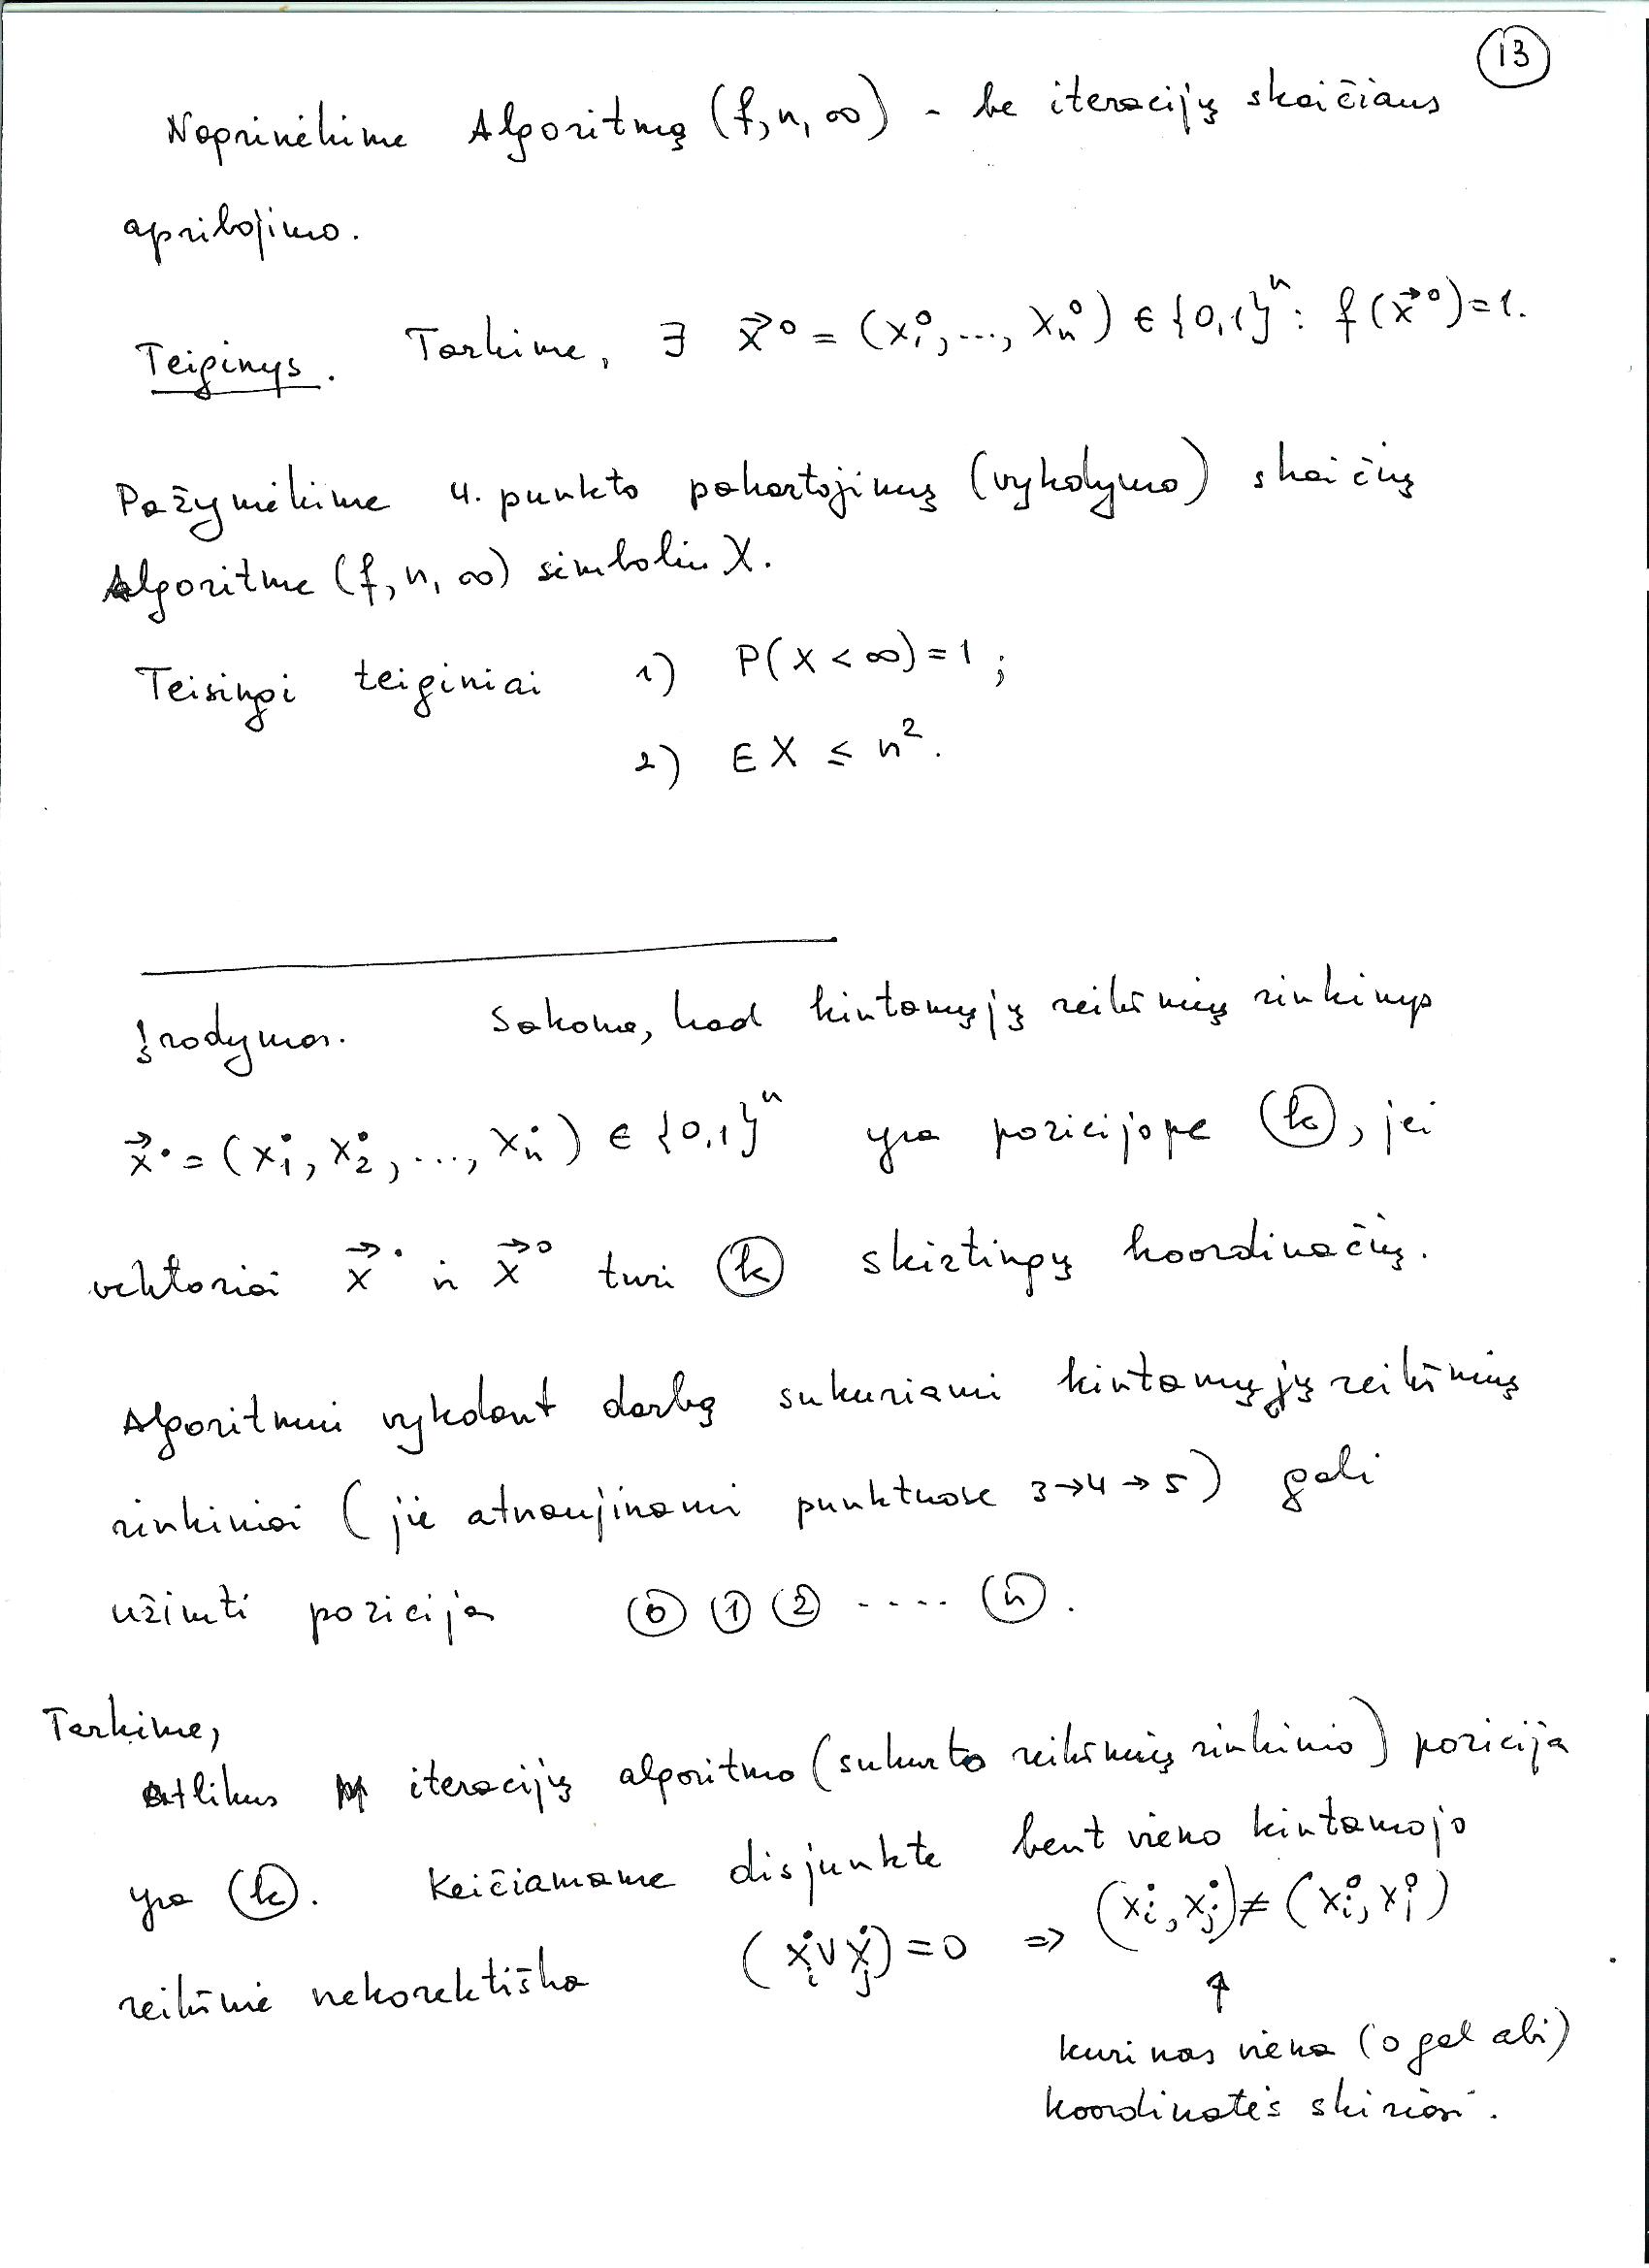 13
Nagrinėkime Algoritmą (f, n, ∞) - be iteracijų skaičiaus
apribojimo.
Teiginys. Tarkime, ∃ x⃗° = (x₁°, ..., xₙ°) ∈ {0,1}ⁿ : f(x⃗°)=1.
Pažymėkime 4. punkto pakartojimų (vykdymo) skaičių
Algoritme (f, n, ∞) simboliu X.
Teisingi teiginiai 1) P(X < ∞) = 1 ;
2) EX ≤ n².
Įrodymas. Sakome, kad kintamųjų reikšmių rinkinys
x⃗• = (x₁•, x₂•, ..., xₙ•) ∈ {0,1}ⁿ yra pozicijoje (k), jei
vektoriai x⃗• ir x⃗° turi (k) skirtingų koordinačių.
Algoritmui vykdant darbą sukuriami kintamųjų reikšmių
rinkiniai (jie atnaujinami punktuose 3→4→5) gali
užimti pozicijas (0) (1) (2) ..... (n).
Tarkime,
atlikus iteracijų algoritmo (sukurto reikšmių rinkinio) pozicija
yra (k). Keičiamame disjunkte bent vieno kintamojo
reikšmė nekorektiška (xᵢ• ∨ xⱼ•) = 0 ⇒ (xᵢ•, xⱼ•) ≠ (xᵢ°, xⱼ°)
↑
kuri nors viena (o gal abi)
koordinatės skiriasi.